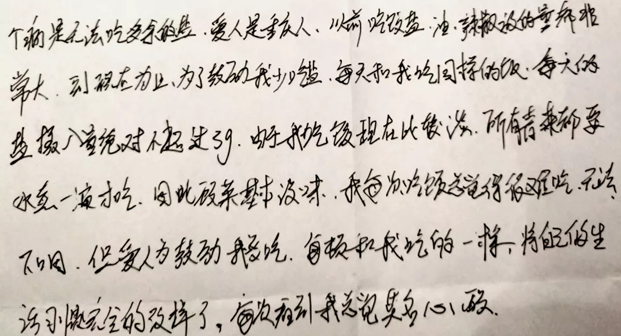 个病是无法吃多余的盐.爱人是重庆人、以前吃饭盐.油.辣椒放的量都非
常大.到现在为止、为了鼓励我少吃盐.每天和我吃同样的饭.每天的
盐摄入量绝对不超过3g.由于我吃饭现在比较淡.所有青菜都要
水煮一滚才吃.因此饭菜基本没味.我每次吃饭总觉得很难吃.无法
下咽.但爱人为鼓励我多吃.每顿和我吃的一样,将自己的生
活习惯完全的改掉了,每次看到我总觉莫名心酸.